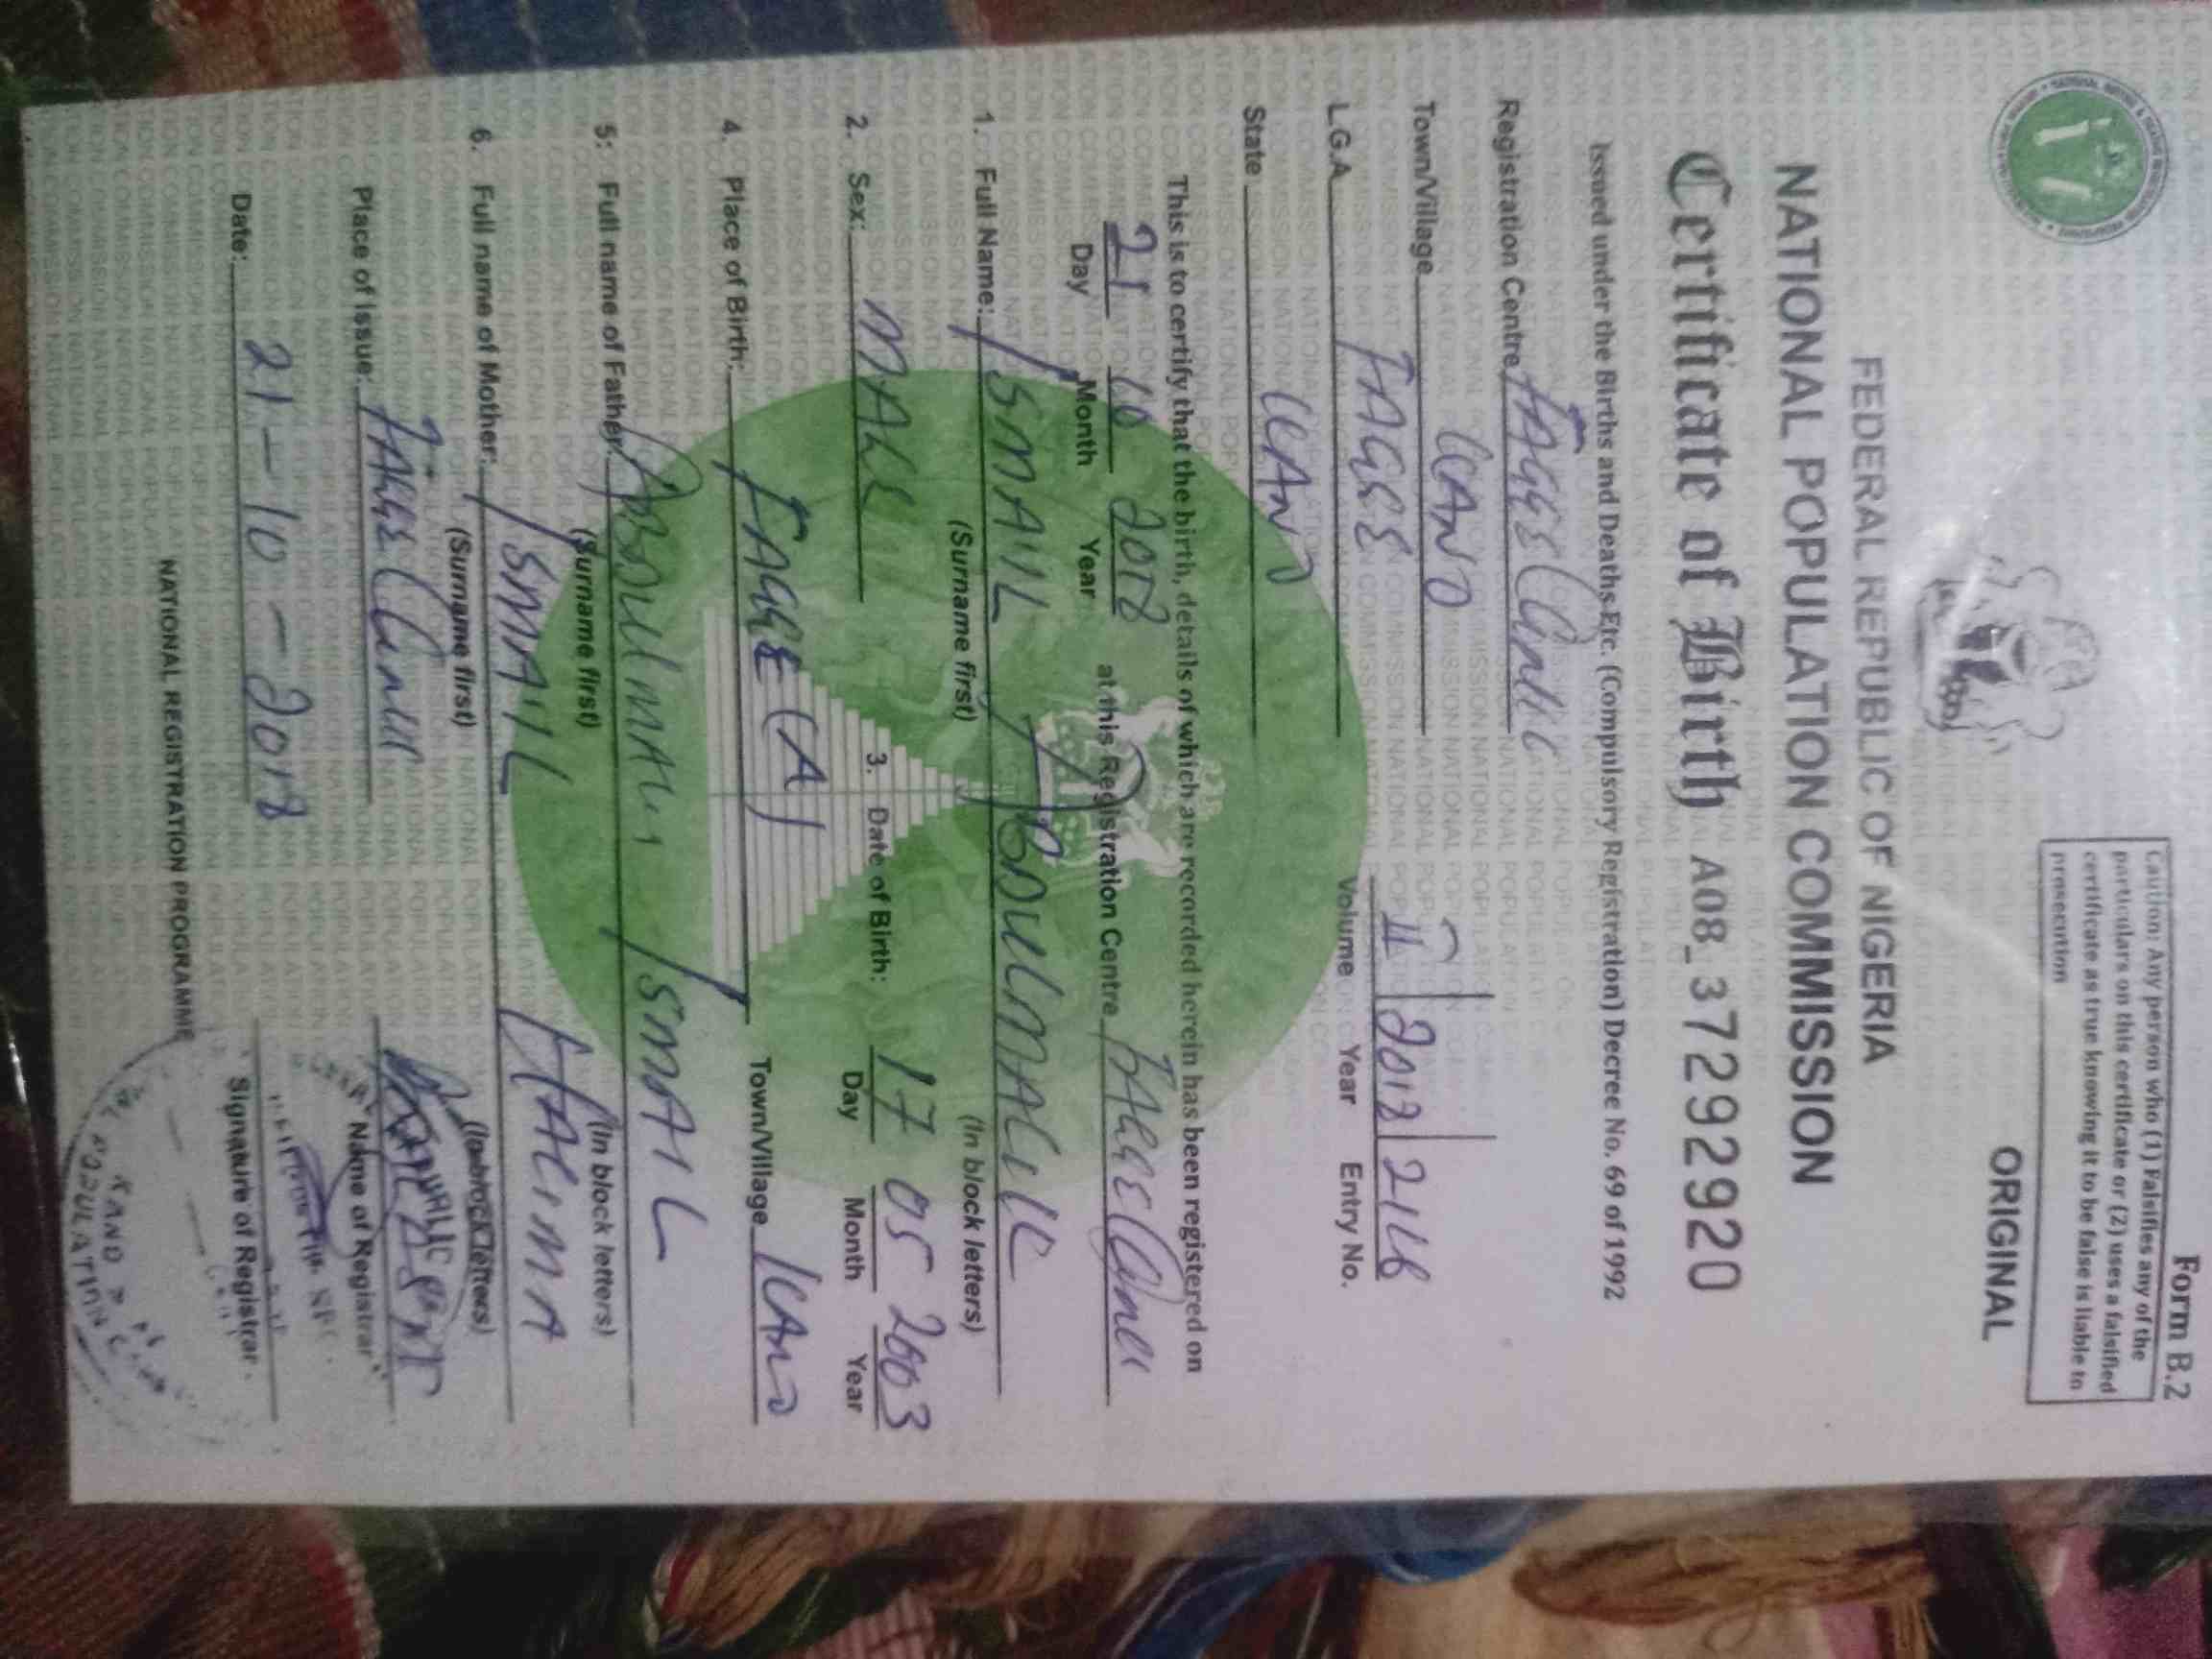 Form B.2
Caution: Any person who (1) Falsifies any of the
particulars on this certificate or (2) uses a falsified
certificate as true knowing it to be false is liable to
prosecution
ORIGINAL
FEDERAL REPUBLIC OF NIGERIA
NATIONAL POPULATION COMMISSION
Certificate of Birth A08_37292920
Issued under the Births and Deaths Etc. (Compulsory Registration) Decree No. 69 of 1992
Registration Centre FAGGE
Town/Village KANO
L.G.A FAGGE
State KANO
II 2018 2146
Volume Year Entry No.
This is to certify that the birth, details of which are recorded herein has been registered on
21 10 2018 at this Registration Centre FAGGE
Day Month Year
1. Full Name: ISMAIL ABDULMALIK
(Surname first) (In block letters)
2. Sex: MALE 3. Date of Birth: 17 05 2003
Day Month Year
4. Place of Birth: FAGGE (A) Town/Village KANO
5: Full name of Father: ABDULMALIK ISMAIL
(Surname first) (In block letters)
6. Full name of Mother: ISMAIL HALIMA
(Surname first) (In block letters)
Place of Issue: FAGGE
Name of Registrar
Date: 21-10-2018
Signature of Registrar
NATIONAL REGISTRATION PROGRAMME